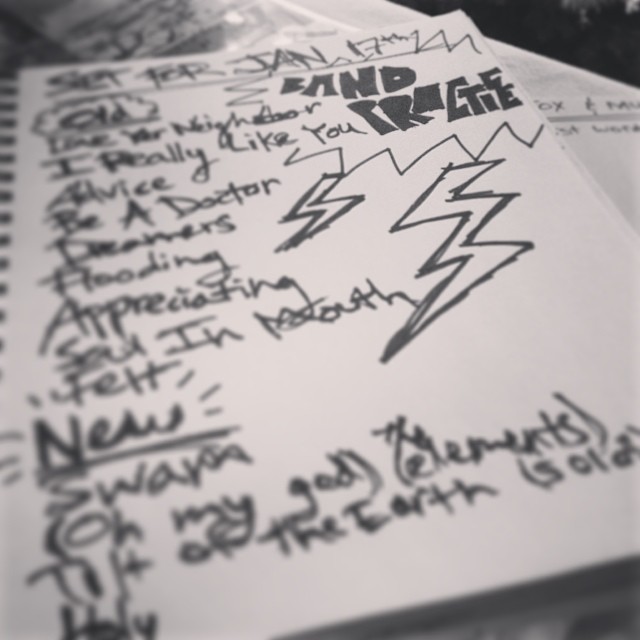 SET FOR JAN. 17th
BAND PRACTICE
(Old)
Love Yer Neighbor
I Really Like You
Advice
Be A Doctor
Dreamers
Flooding
Appreciating
Soul In Mouth
Felt
New
Swarm
(Oh my god) (The elements)
Tilt of the Earth (solo)
Holy